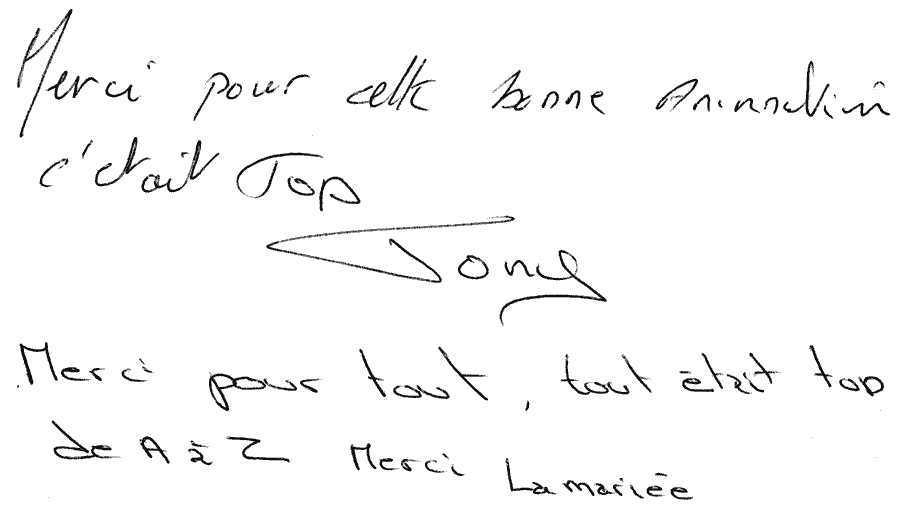 Merci pour cette bonne Animation
c'était Top
Tony
Merci pour tout, tout était top
de A à Z Merci La mariée